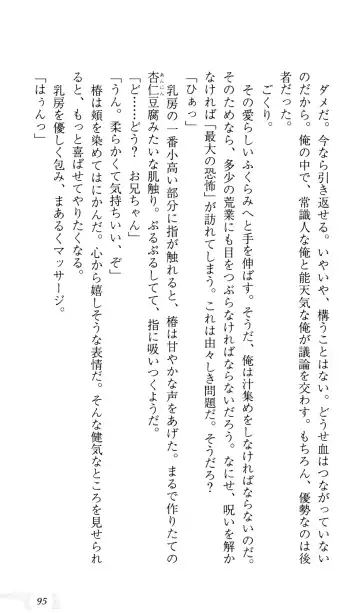 ダメだ。今なら引き返せる。いやいや、構うことはない。どうせ血はつながっていない
のだから。俺の中で、常識人な俺と能天気な俺が議論を交わす。もちろん、優勢なのは後
者だった。
ごくり。
その愛らしいふくらみへと手を伸ばす。そうだ、俺は汁集めをしなければならないのだ。
そのためなら、多少の荒業にも目をつぶらなければならないだろう。なにせ、呪いを解か
なければ「最大の恐怖」が訪れてしまう。これは由々しき問題だ。そうだろ？
「ひぁっ」
乳房の一番小高い部分に指が触れると、椿は甘やかな声をあげた。まるで作りたての
杏仁豆腐みたいな肌触り。ぷるぷるしてて、指に吸いつくようだ。
あんにん
「ど……どう？　お兄ちゃん」
「うん。柔らかくて気持ちいい、ぞ」
椿は頬を染めてはにかんだ。心から嬉しそうな表情だ。そんな健気なところを見せられ
ると、もっと喜ばせてやりたくなる。
乳房を優しく包み、まあるくマッサージ。
「はぅんっ」
95